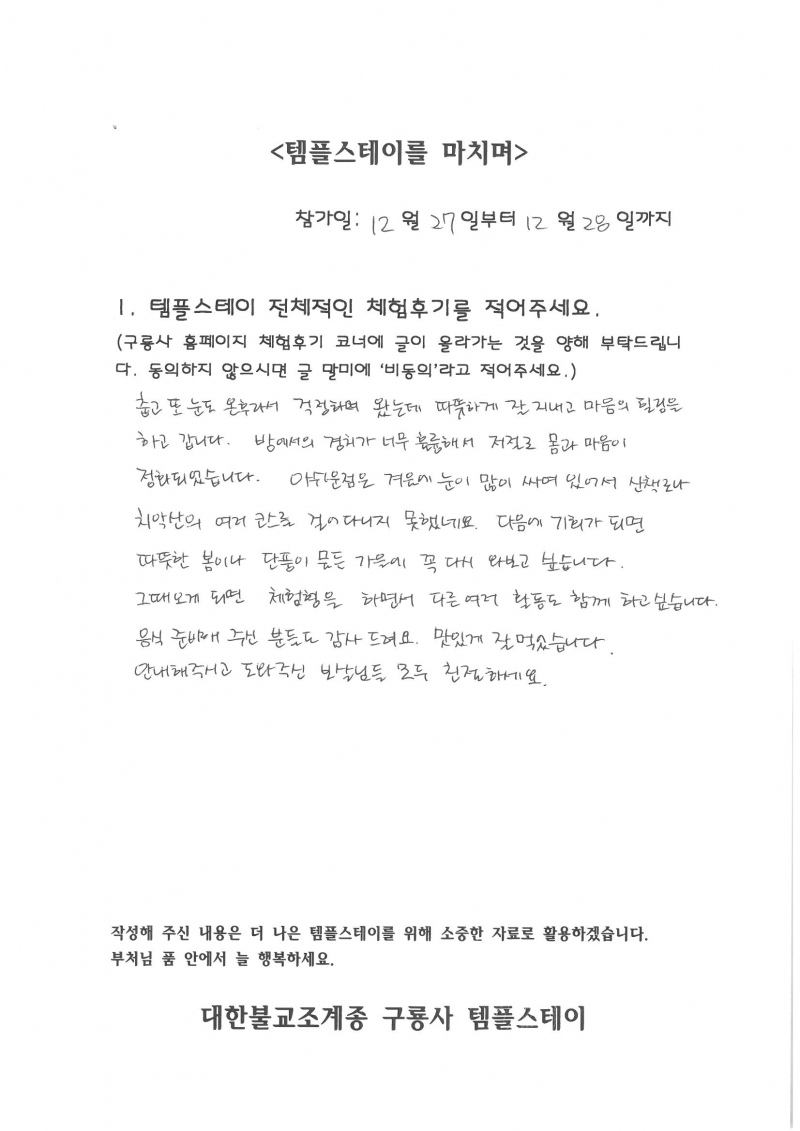 <템플스테이를 마치며>
참가일: 12 월 27일부터 12 월 28 일까지
1. 템플스테이 전체적인 체험후기를 적어주세요.
(구룡사 홈페이지 체험후기 코너에 글이 올라가는 것을 양해 부탁드립니
다. 동의하지 않으시면 글 말미에 '비동의'라고 적어주세요.)
춥고 또 눈도 온후라서 걱정하며 왔는데 따뜻하게 잘 지내고 마음의 힐링을
하고 갑니다. 방에서의 경치가 너무 훌륭해서 저절로 몸과 마음이
정화되었습니다. 아쉬운점은 겨울에 눈이 많이 싸여 있어서 산책로나
치악산의 여러 코스를 걸어다니지 못했네요. 다음에 기회가 되면
따뜻한 봄이나 단풍이 물든 가을에 꼭 다시 와보고 싶습니다.
그때오게 되면 체험형을 하면서 다른 여러 활동도 함께 하고싶습니다.
음식 준비해 주신 분들도 감사 드려요. 맛있게 잘 먹었습니다.
안내해주시고 도와주신 보살님들 모두 친절하세요.
작성해 주신 내용은 더 나은 템플스테이를 위해 소중한 자료로 활용하겠습니다.
부처님 품 안에서 늘 행복하세요.
대한불교조계종 구룡사 템플스테이